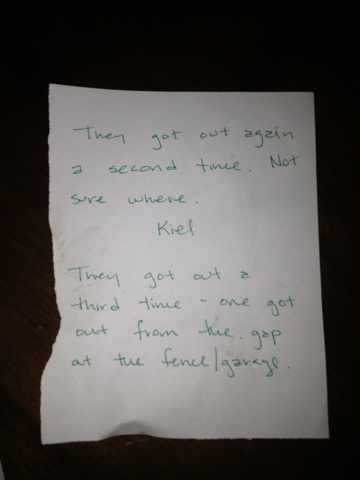 They got out again
a second time. Not
sure where.
Kiel
They got out a
third time - one got
out from the gap
at the fence/garage.